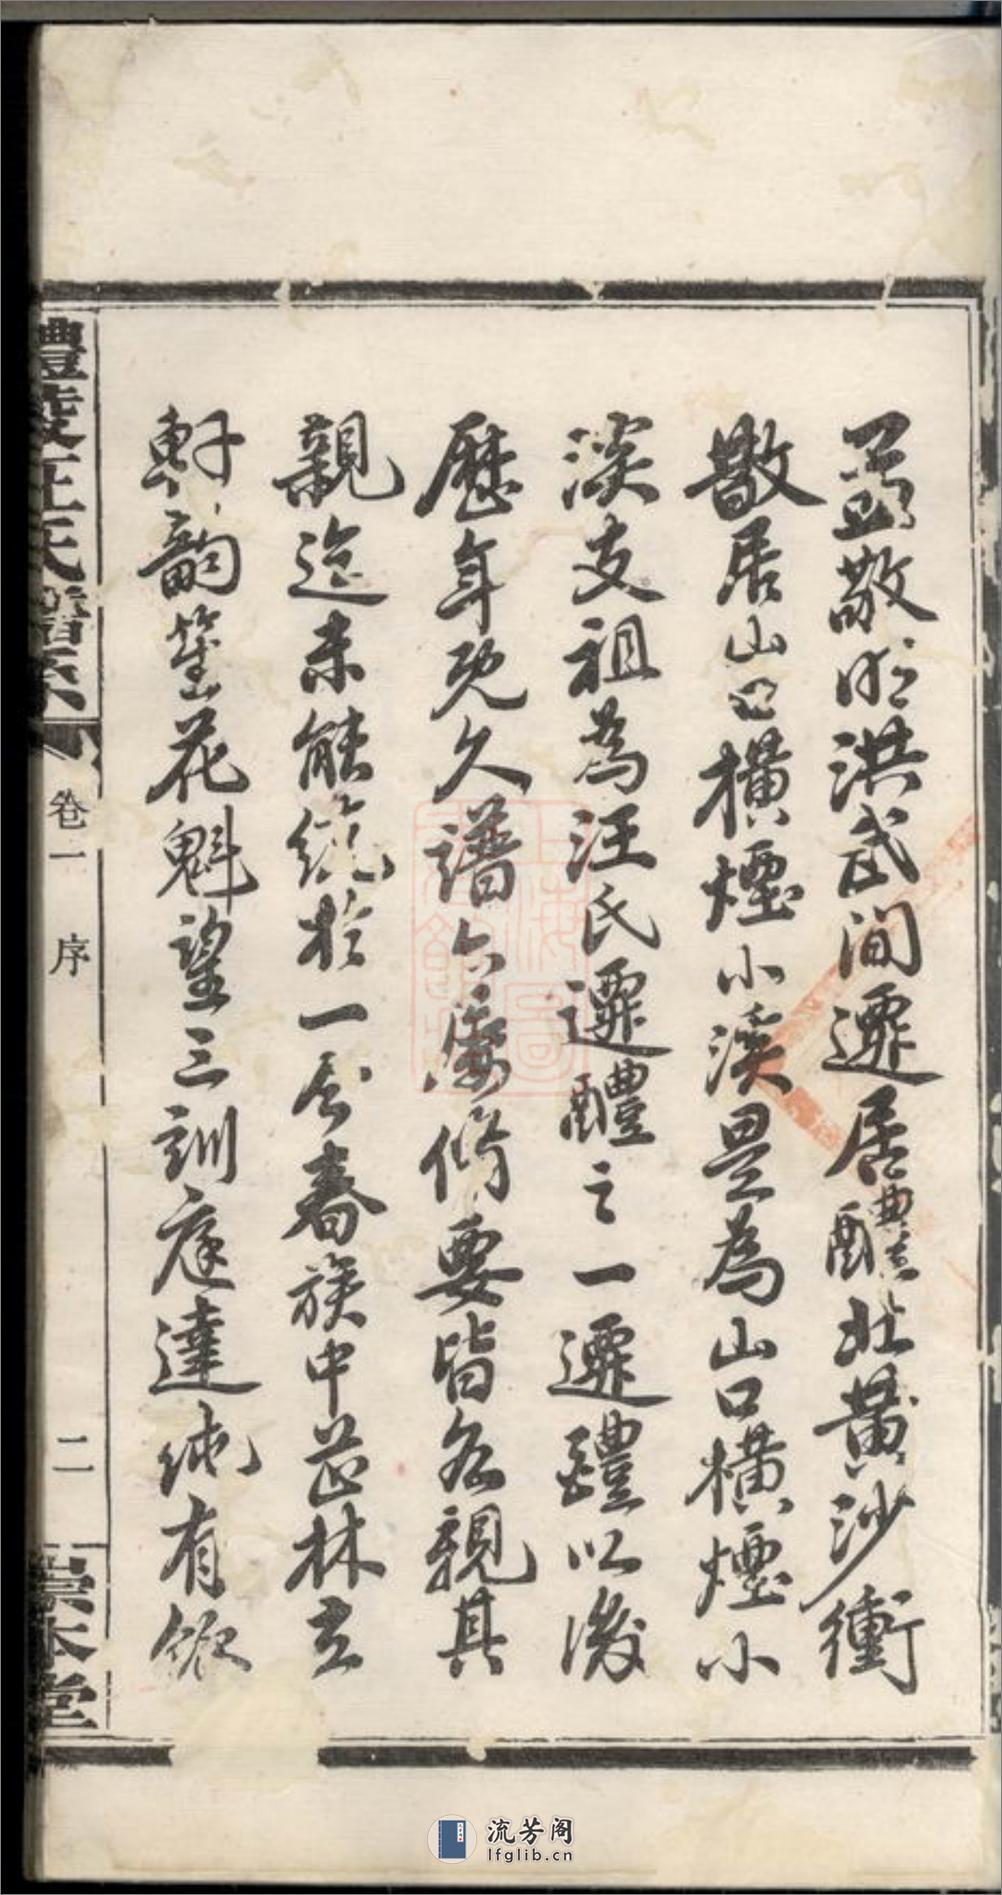 孟敬明洪武間遷居醴北黃沙衝
散居山口橫煙小溪是為山口橫煙小
溪支祖為汪氏遷醴之一遷醴以後
歷年既久譜亦屢修要皆各親其
親迄未能統於一今春族中芷林立
軒韵笙花魁望三訓庭達純有欽
醴陵汪氏譜系
卷一
序
二
崇本堂
流芳阁
lfglib.cn